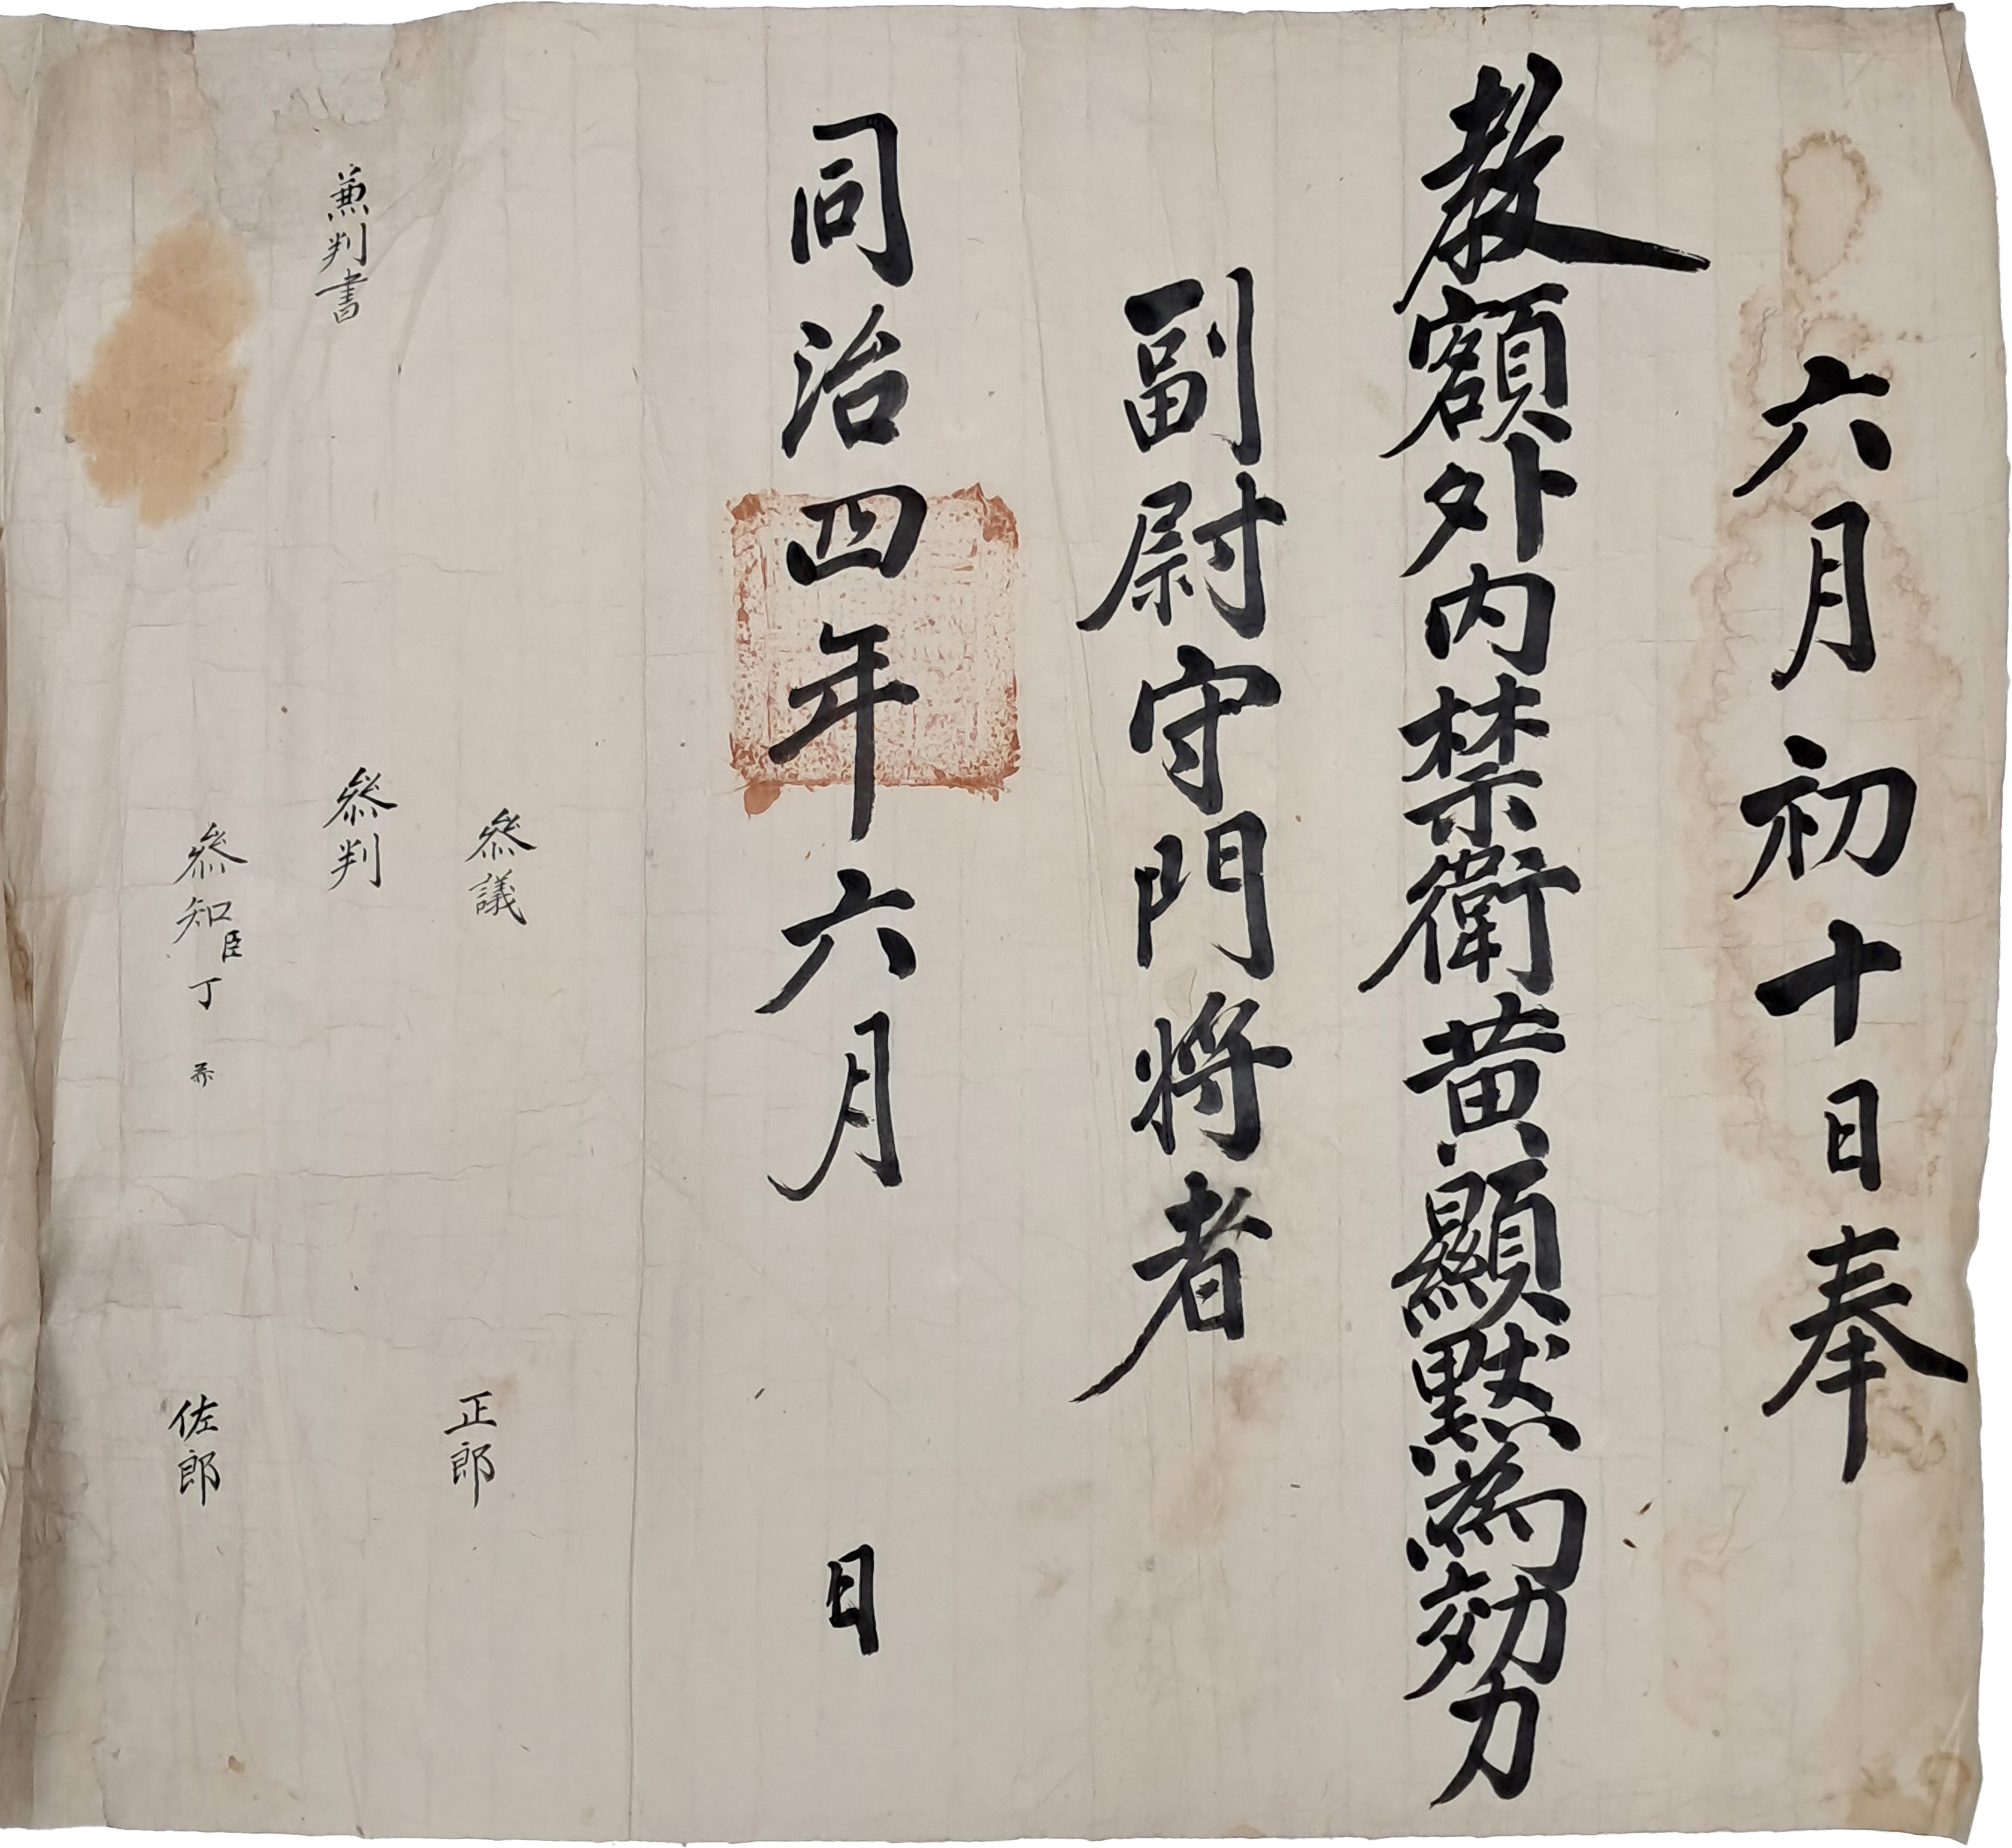 六月初十日奉
教額外内禁衛黄顯默為効力
副尉守門将者
同治四年六月　日
兼判書
叅議
叅判
叅知臣丁
正郎
佐郎